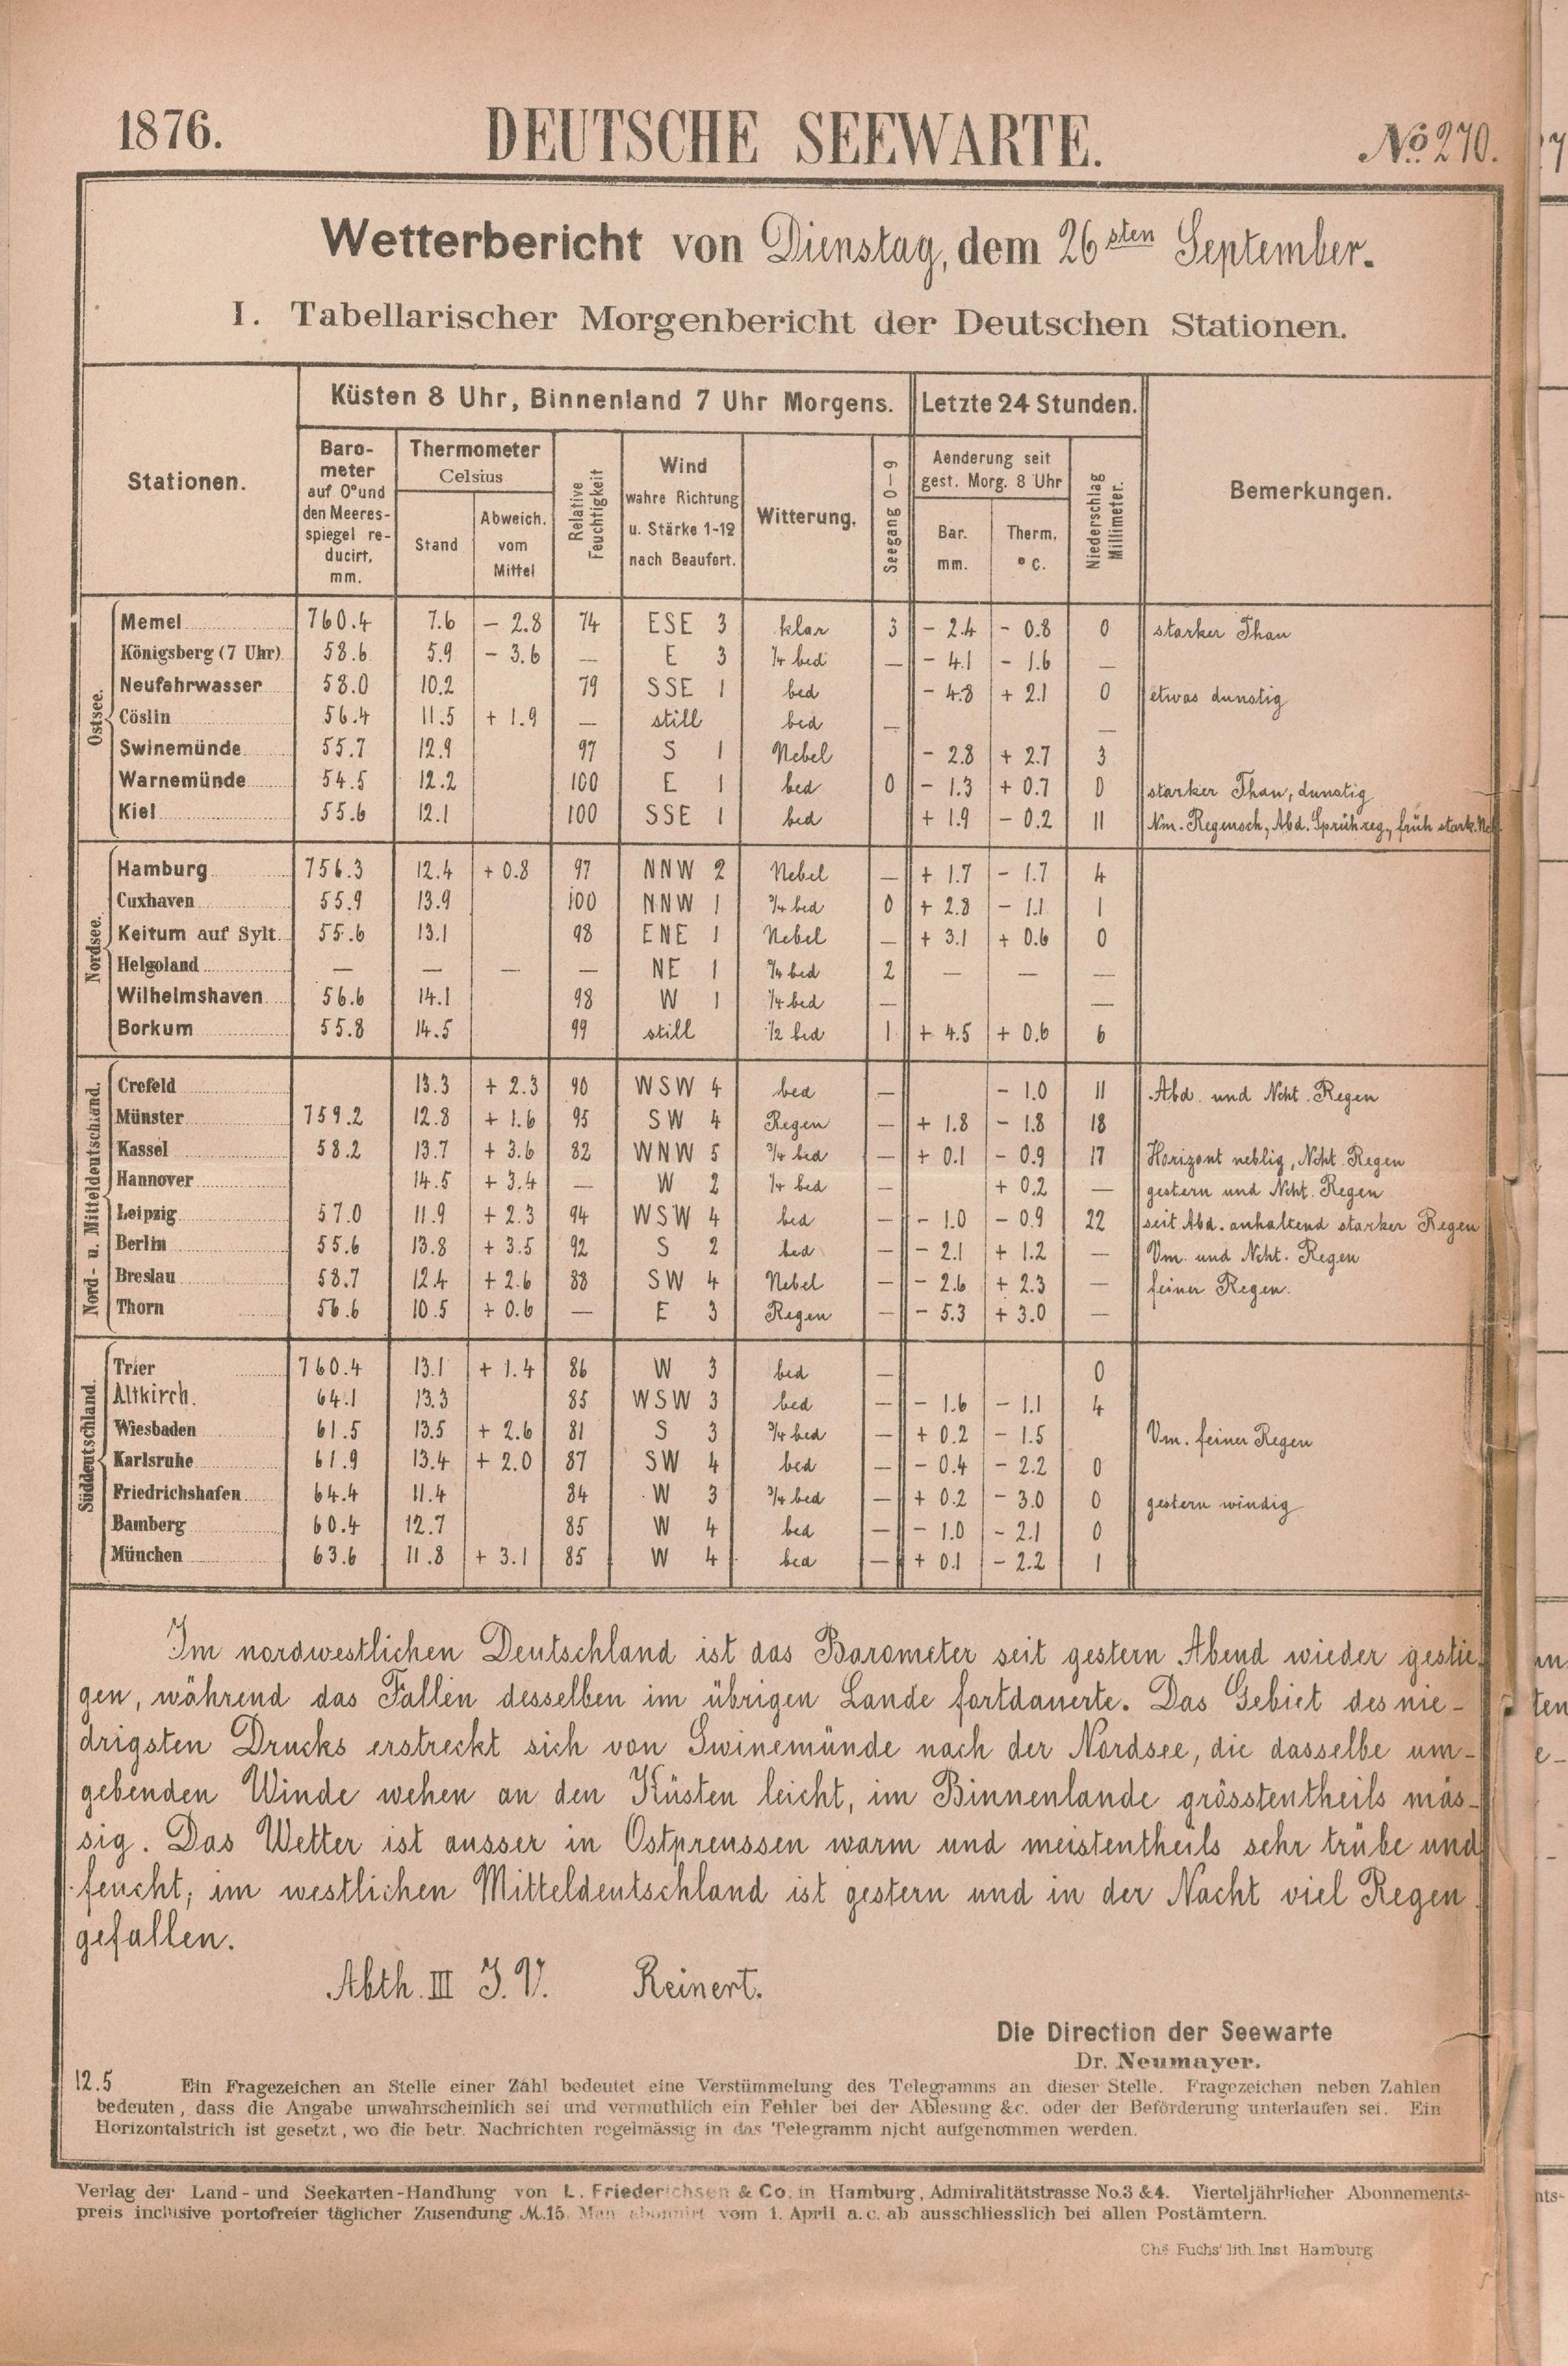 1876. DEUTSCHE SEEWARTE. No. 270.
Wetterbericht von Dienstag, dem 26sten September.
I. Tabellarischer Morgenbericht der Deutschen Stationen.
Stationen. Küsten 8 Uhr, Binnenland 7 Uhr Morgens. Letzte 24 Stunden. Bemerkungen.
Barometer auf 0° und den Meeresspiegel reducirt, mm. Thermometer Celsius Stand Abweich. vom Mittel Relative Feuchtigkeit Wind wahre Richtung u. Stärke 1-12 nach Beaufort. Witterung. Seegang 0-9 Aenderung seit gest. Morg. 8 Uhr Bar. mm. Therm. ° C. Niederschlag Millimeter.
Ostsee.
Memel 760.4 7.6 - 2.8 74 ESE 3 klar 3 - 2.4 - 0.8 0 starker Thau
Königsberg (7 Uhr) 58.6 5.9 - 3.6 — E 3 1/4 bed — - 4.1 - 1.6 —
Neufahrwasser 58.0 10.2 79 SSE 1 bed - 4.8 + 2.1 0 etwas dunstig
Cöslin 56.4 11.5 + 1.9 — still bed — —
Swinemünde 55.7 12.9 97 S 1 Nebel - 2.8 + 2.7 3
Warnemünde 54.5 12.2 100 E 1 bed 0 - 1.3 + 0.7 0 starker Thau, dunstig
Kiel 55.6 12.1 100 SSE 1 bed + 1.9 - 0.2 11 Nm. Regensch, Abd. Sprühreg, früh stark.
Nordsee.
Hamburg 756.3 12.4 + 0.8 97 NNW 2 Nebel — + 1.7 - 1.7 4
Cuxhaven 55.9 13.9 100 NNW 1 3/4 bed 0 + 2.8 - 1.1 1
Keitum auf Sylt 55.6 13.1 98 ENE 1 Nebel — + 3.1 + 0.6 0
Helgoland — — — — NE 1 bed 2 — — —
Wilhelmshaven 56.6 14.1 98 W 1 1/4 bed — —
Borkum 55.8 14.5 99 still 1/2 bed 1 + 4.5 + 0.6 6
Nord- u. Mitteldeutschland.
Crefeld 13.3 + 2.3 90 WSW 4 bed — - 1.0 11 Abd. und Ncht. Regen
Münster 759.2 12.8 + 1.6 95 SW 4 Regen — + 1.8 - 1.8 18
Kassel 58.2 13.7 + 3.6 82 WNW 5 3/4 bed — + 0.1 - 0.9 17 Horizont neblig, Ncht. Regen
Hannover 14.5 + 3.4 — W 2 1/4 bed — + 0.2 — gestern und Ncht. Regen
Leipzig 57.0 11.9 + 2.3 94 WSW 4 bed — - 1.0 - 0.9 22 seit Abd. anhaltend starker Regen
Berlin 55.6 13.8 + 3.5 92 S 2 bed — - 2.1 + 1.2 — Vm. und Ncht. Regen
Breslau 58.7 12.4 + 2.6 88 SW 4 Nebel — - 2.6 + 2.3 — feiner Regen.
Thorn 56.6 10.5 + 0.6 — E 3 Regen — - 5.3 + 3.0 —
Süddeutschland.
Trier 760.4 13.1 + 1.4 86 W 3 bed — 0
Altkirch. 64.1 13.3 85 WSW 3 bed — - 1.6 - 1.1 4
Wiesbaden 61.5 13.5 + 2.6 81 S 3 3/4 bed — + 0.2 - 1.5 Vm. feiner Regen
Karlsruhe 61.9 13.4 + 2.0 87 SW 4 bed — - 0.4 - 2.2 0
Friedrichshafen 64.4 11.4 84 W 3 3/4 bed — + 0.2 - 3.0 0 gestern windig
Bamberg 60.4 12.7 85 W 4 bed — - 1.0 - 2.1 0
München 63.6 11.8 + 3.1 85 W 4 bed — + 0.1 - 2.2 1
Im nordwestlichen Deutschland ist das Barometer seit gestern Abend wieder gestie-
gen, während das Fallen desselben im übrigen Lande fortdauerte. Das Gebiet des nie-
drigsten Drucks erstreckt sich von Swinemünde nach der Nordsee, die dasselbe um-
gebenden Winde wehen an den Küsten leicht, im Binnenlande grösstentheils mäs-
sig. Das Wetter ist ausser in Ostpreussen warm und meistentheils sehr trübe und
feucht, im westlichen Mitteldeutschland ist gestern und in der Nacht viel Regen
gefallen.
Abth. III J.V. Reinert.
Die Direction der Seewarte
Dr. Neumayer.
12.5 Ein Fragezeichen an Stelle einer Zahl bedeutet eine Verstümmelung des Telegramms an dieser Stelle. Fragezeichen neben Zahlen
bedeuten, dass die Angabe unwahrscheinlich sei und vermuthlich ein Fehler bei der Ablesung &c. oder der Beförderung unterlaufen sei. Ein
Horizontalstrich ist gesetzt, wo die betr. Nachrichten regelmässig in das Telegramm nicht aufgenommen werden.
Verlag der Land- und Seekarten-Handlung von L. Friederichsen & Co. in Hamburg, Admiralitätstrasse No. 3 & 4. Vierteljährlicher Abonnements-
preis inclusive portofreier täglicher Zusendung M. 15. Man abonnirt vom 1. April a. c. ab ausschliesslich bei allen Postämtern.
Chs Fuchs' lith. Inst Hamburg